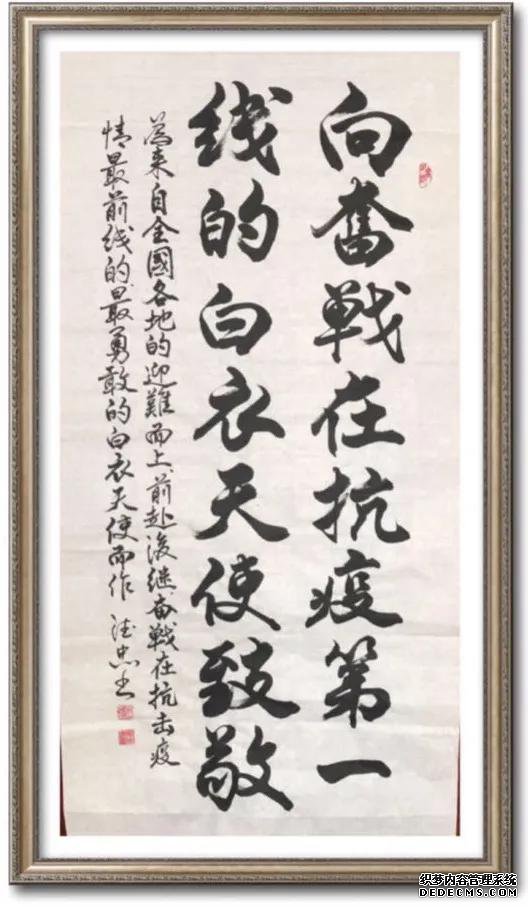 向奮戰在抗疫第一
线的白衣天使致敬
為来自全國各地的迎難而上、前赴後继、奋戰在抗击疫
情最前线的最勇敢的白衣天使而作 忠书
织梦内容管理系统
DEDECMS.COM